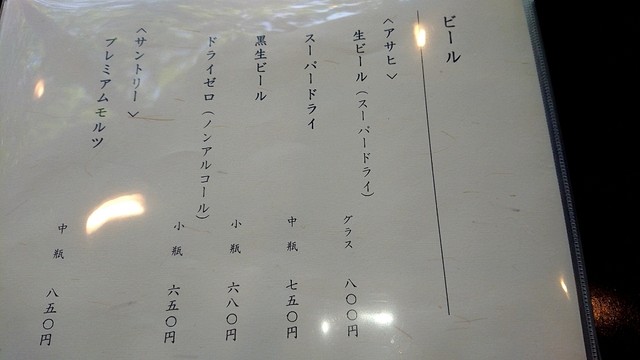 ビール
〈アサヒ〉
生ビール（スーパードライ） グラス 八〇〇円
スーパードライ 中瓶 七五〇円
黒生ビール 小瓶 六八〇円
ドライゼロ（ノンアルコール） 小瓶 六五〇円
〈サントリー〉
プレミアムモルツ 中瓶 八五〇円